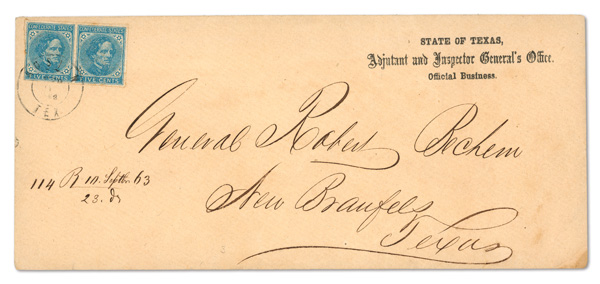 CONFEDERATE STATES
CONFEDERATE STATES
FIVE CENTS
FIVE CENTS
TEX
STATE OF TEXAS,
Adjutant and Inspector General's Office.
Official Business.
General Robert Bechem
New Braufels
Texas
114 R 14. Septbr. 63
23.